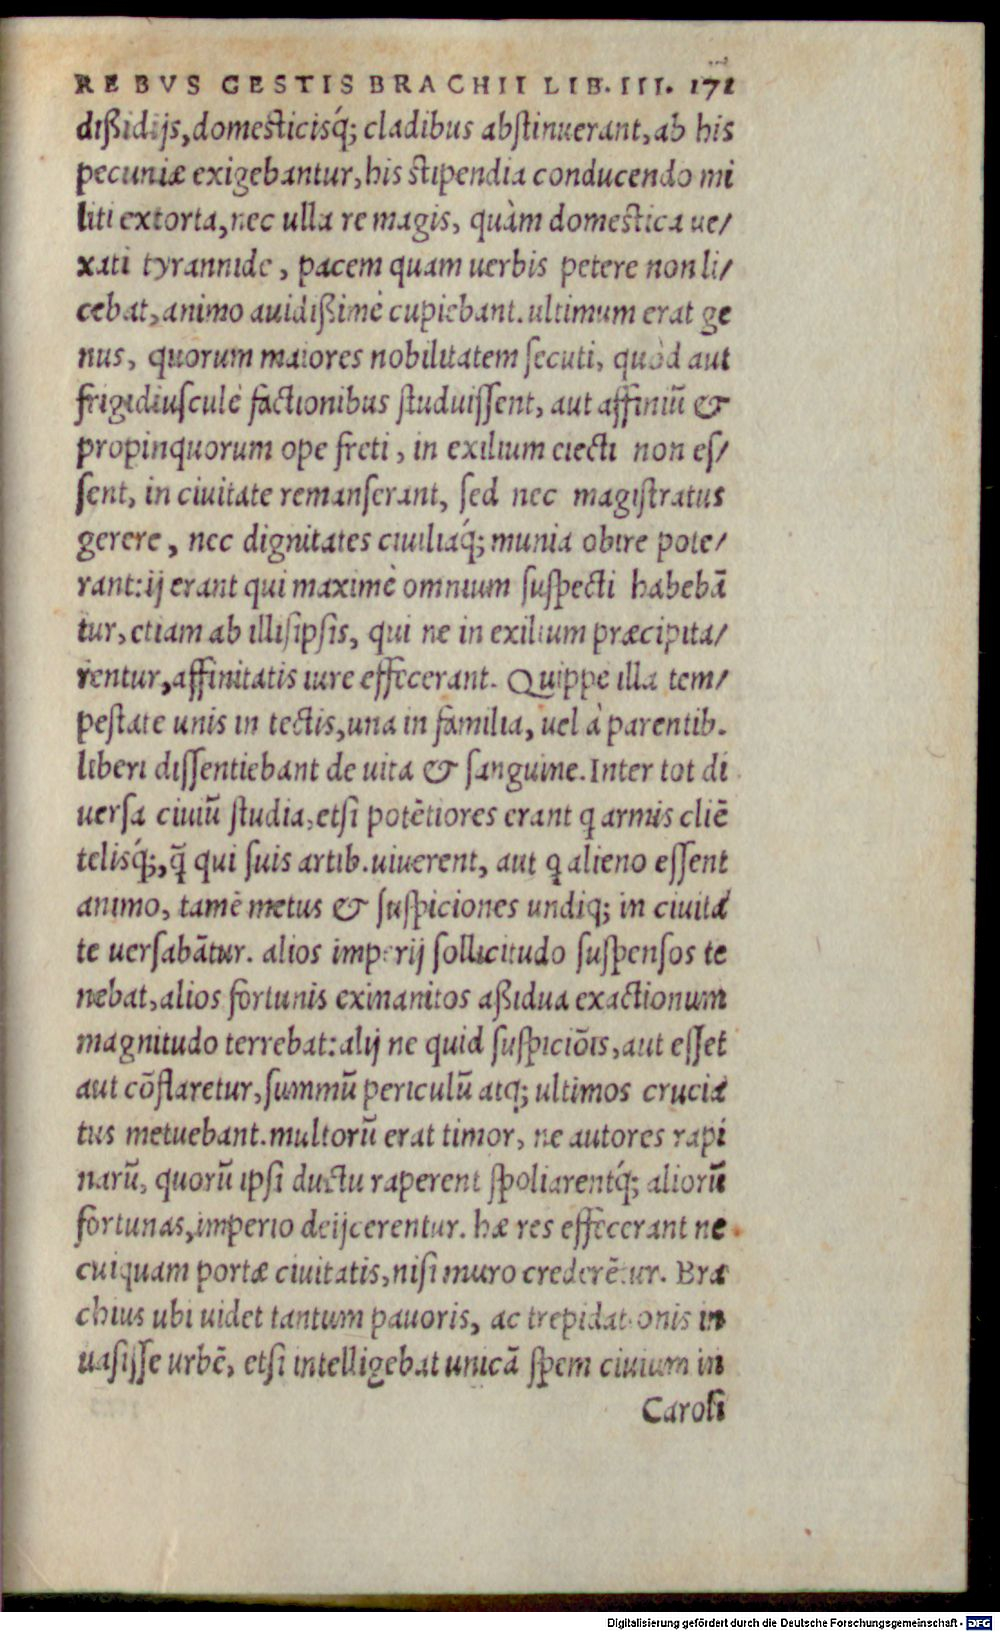 REBVS GESTIS BRACHII LIB. III. 171
dißidijs, domesticisq́; cladibus abstinuerant, ab his
pecuniæ exigebantur, his stipendia conducendo mi
liti extorta, nec ulla re magis, quàm domestica ue/
xati tyrannide, pacem quam uerbis petere non li/
cebat, animo auidißimè cupiebant. ultimum erat ge
nus, quorum maiores nobilitatem secuti, quòd aut
frigidiusculè factionibus studuissent, aut affiniũ &
propinquorum ope freti, in exilium eiecti non es/
sent, in ciuitate remanserant, sed nec magistratus
gerere, nec dignitates ciuiliaq́; munia obire pote/
rant: ij erant qui maximè omnium suspecti habebã
tur, etiam ab illis ipsis, qui ne in exilium præcipita/
rentur, affinitatis iure effecerant. Quippe illa tem/
pestate unis in tectis, una in familia, uel à parentib.
liberi dissentiebant de uita & sanguine. Inter tot di
uersa ciuiũ studia, etsi potẽtiores erant q armis cliẽ
telisq́;, q̃ qui suis artib. uiuerent, aut q alieno essent
animo, tamẽ metus & suspiciones undiq; in ciuita
te uersabãtur. alios imperij sollicitudo suspensos te
nebat, alios fortunis exinanitos aßidua exactionum
magnitudo terrebat: alij ne quid suspiciõis, aut esset
aut cõflaretur, summũ periculũ atq; ultimos crucia
tus metuebant. multorũ erat timor, ne autores rapi
narũ, quorũ ipsi ductu raperent spoliarentq́; aliorũ
fortunas, imperio deijcerentur. hæ res effecerant ne
cuiquam portæ ciuitatis, nisi muro crederẽtur. Bra
chius ubi uidet tantum pauoris, ac trepidationis in
uasisse urbẽ, etsi intelligebat unicã spem ciuium in
Caroli
Digitalisierung gefördert durch die Deutsche Forschungsgemeinschaft - DFG